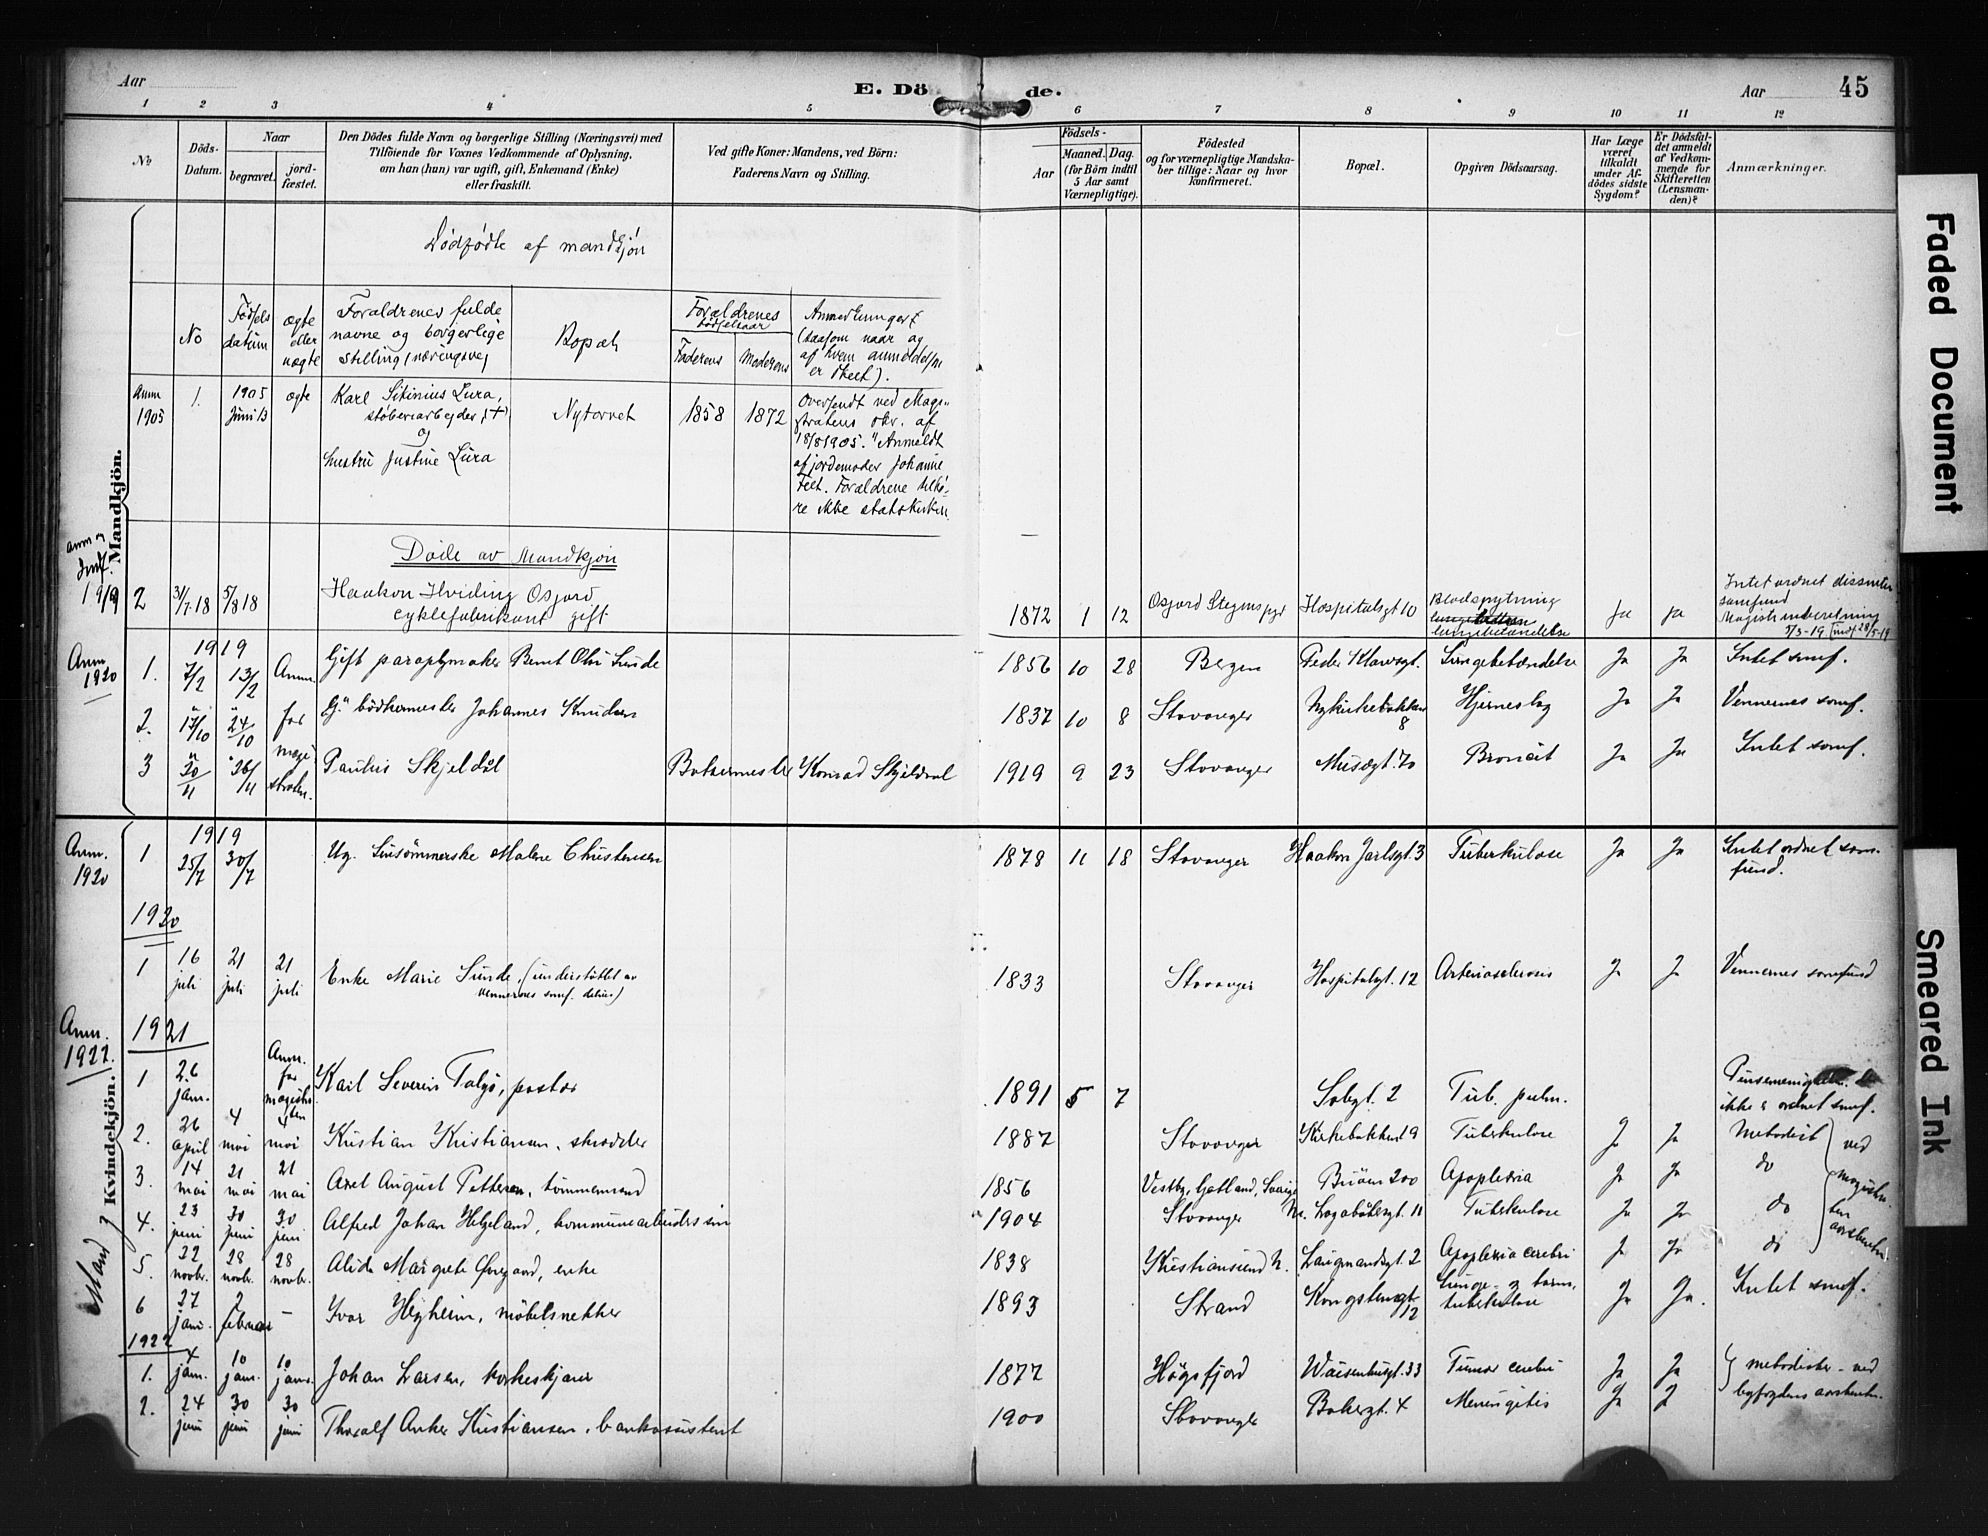 Aar
E. Dö de.
Aar
45
1 2 3 4 5 6 7 8 9 10 11 12
No
Döds-Datum.
Naar
begravet.
jord-fæstet.
Den Dödes fulde Navn og borgerlige Stilling (Næringsvei) med
Tilföiende for Voxnes Vedkommende af Oplysning,
om han (hun) var ugift, gift, Enkemand (Enke)
eller fraskilt.
Ved gifte Koner: Mandens, ved Börn:
Faderens Navn og Stilling.
Födsels-
Aar
Maaned. Dag.
(for Börn indtil
5 Aar samt
Værnepligtige).
Födested
og for værnepligtige Mandska-
ber tillige: Naar og hvor
konfirmeret.
Bopæl.
Opgiven Dödsaarsag.
Har Læge
været
tilkaldt
under Af-
dödes sidste
Sygdom?
Er Dödsfal-
det anmeldt
af Vedkom-
mende for
Skifteretten
(Lensman-
den)?
Anmærkninger.
Mandkjön.
Dødfødte af mandkjøn
No
Fødsels datum
ægte eller uægte
Forældrenes fulde
navne og borgerlige
stilling (næringsvei)
Bopæl
Forældrenes
fødselsaar
Faderens
Moderens
Anmerkninger
(saasom naar og
af hvem anmeldelse
er skeet).
Anm 1905
1.
1905 Juni 13
ægte
Karl Sitinius Lura,
støberiarbejder, (+)
og
hustru Justine Lura
Nytorvet
1858
1872
Oversendt ved Magi-
stratens skr. af
18/8 1905. "Anmeldt
af jordemoder Johanne
Feet. Forældrene tilhø-
re ikke statskirken.
Døde av Mandkjøn
anm og indf. 1919
2 31/7 18 5/8 18 Haakon Hviding Osjord
cyklefabrikant gift
1872 1 12 Osjord Stegenspgr Hospitalsgt 10 Blodspytning
lungebetændelse
ja ja
Intet ordnet dissenter
samfund
Magistr. indberetning
5/3-19 [indf. 28/5-19
Anm 1920
1919
1. 7/2 13/2 Anm. Gift paraplymaker Bernt Olai Sunde 1856 10 28 Bergen Peder Klowsgt. Lungebetændelse Ja Ja Intet samf.
2. 17/10 24/10 for G." bødkermester Johannes Knudsen 1837 10 8 Stavanger Nykirkebakken 8 Hjerneslag Ja Ja Vennernes samf.
3 20/11 26/11 magi-straten. Paulus Skjeldal Bakermester Konrad Skjeldal 1919 9 23 Stavanger Muségt. 70 Bronkit Ja Ja Intet samf.
Kvindekjön.
Anm. 1920
1919
1 25/7 30/7 Ug. Linsømmerske Malene Christensen 1878 11 18 Stavanger Haakon Jarlsgt. 3 Tuberkulose Ja Ja Intet ordnet sam-
fund.
1920
1 16 juli 21 juli 21 juli Enke Marie Sunde. (understøttet av
vennernes samf. )
1833 Stavanger Hospitalsgt. 12 Arteriosclerosis J J Vennernes samfund
Anm. 1922.
1921
1 26 jan. Anm. for magistraten Karl Severin Talgø, pastor 1891 5 7 Solvgt. 2 Tub. pulm. Pinsemenigheten
ikke i ordnet samf.
2. 26 april 4 mai 4 mai Kristian Kristiansen, skrædder 1887 Stavanger Kirkebakken 9 Tuberkulose J Ja Metodist
3. 14 mai 21 mai 21 mai Axel August Pettersen, tømmermand 1856 Vestby, Gøtland, Sverige Bruen 200 Apoplexia J Ja do
4. 23 juni 30 juni 30 juni Alfred Johan Helgeland, kommunearbeiders søn 1904 Stavanger Lagabøtersgt. 11 Tuberkulose Ja Ja do
5. 22 novbr. 28 novbr. 28 novbr. Alida Margrete Øvregaard, enke 1838 Kristiansund N. Laugmandsgt. 2 Apoplexia cerebri J Ja do
ved
magistra-
ten
6 27 jan. 2 februar – Ivar Hegheim, møbelsnekker 1893 Strand Kongstensgt. 12 Lunge- og tarm,
tuberkulose Ja Ja. Intet samf.
Mand
1922
1. 4 jan. 10 jan. 10 jan. Johan Larsen, korkeskjærer 1877 Høgsfjord Waisenhusgt. 33 Tumor cerebri Ja Ja metodister - ved
2. 24 juni 30 juni 30 juni Thoralf Anker Kristiansen, bankassistent 1900 Stavanger Bakergt. 4 Meningitis Ja J
Faded Document
Smeared Ink